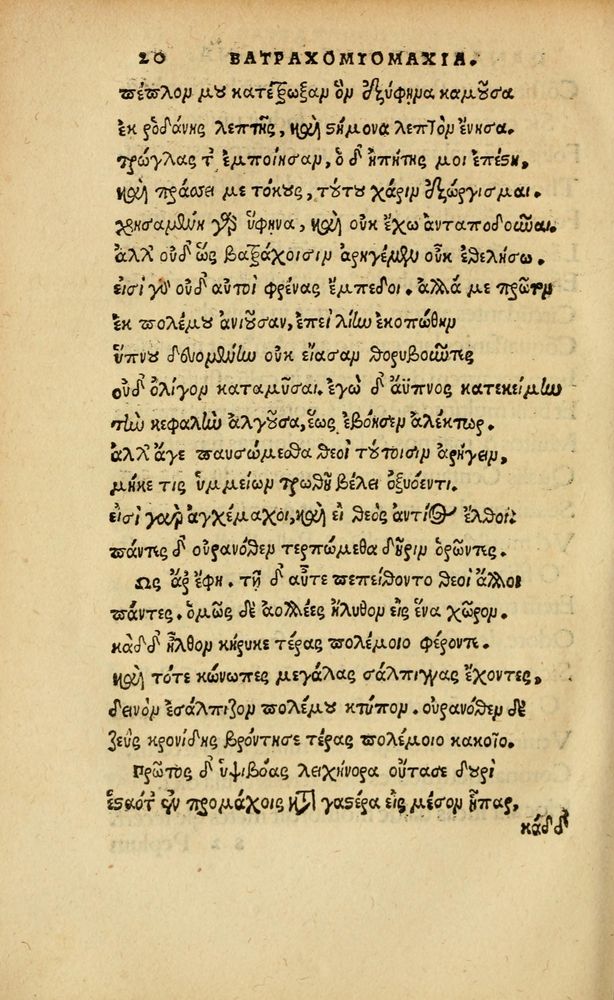 20 ΒΑΤΡΑΧΟΜΥΟΜΑΧΙΑ.
πέπλον μου κατέτρωξαν ὃν ἐξύφηνα καμοῦσα
ἐκ ῥοδάνης λεπτῆς, καὶ στήμονα λεπτὸν ἔνησα.
τρώγλας τ' ἐμποίησαν, ὁ δ' ἠπητής μοι ἐπέστη,
καὶ πράσσει με τόκους, τούτου χάριν ἐξώργισμαι.
χρησαμένη γὰρ ὕφηνα, καὶ οὐκ ἔχω ἀνταποδοῦναι.
ἀλλ' οὐδ' ὣς βατράχοισιν ἀρηγέμεν οὐκ ἐθελήσω.
εἰσὶ γὰρ οὐδ' αὐτοὶ φρένας ἔμπεδοι. ἀλλά με πρῴην
ἐκ πολέμου ἀνιοῦσαν, ἐπεὶ λίην ἐκοπώθην
ὕπνου δευομένην οὐκ εἴασαν θορυβοῦντες
οὐδ' ὀλίγον καταμῦσαι. ἐγὼ δ' ἄϋπνος κατεκείμην
τὴν κεφαλὴν ἀλγοῦσα, ἕως ἐβόησεν ἀλέκτωρ.
ἀλλ' ἄγε παυσώμεσθα θεοὶ τούτοισιν ἀρήγειν,
μήκε τις ὑμμείων τρωθῇ βέλει ὀξυόεντι.
εἰσὶ γὰρ ἀγχέμαχοι, καὶ εἰ θεὸς ἀντίος ἔλθοι:
πάντες δ' οὐρανόθεν τερπώμεθα δῆριν ὁρῶντες.
Ὣς ἄρ' ἔφη. τῇ δ' αὖτε πεπείθοντο θεοὶ ἄλλοι
πάντες. ὁμῶς δὲ ἀολλέες ἤλυθον εἰς ἕνα χῶρον.
κὰδ δ' ἦλθον κήρυκε τέρας πολέμοιο φέροντε.
καὶ τότε κώνωπες μεγάλας σάλπιγγας ἔχοντες,
δεινὸν ἐσάλπιζον πολέμου κτύπον. οὐρανόθεν δὲ
Ζεὺς κρονίδης βρόντησε τέρας πολέμοιο κακοῖο.
Πρῶτος δ' ὑψιβόας λειχήνορα οὔτασε δουρὶ
ἑσταότ' ἐν προμάχοις κατὰ γαστέρα εἰς μέσον ἧπαρ,
κὰδ δ'